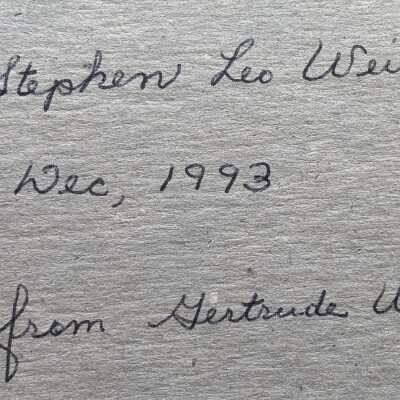 Stephen Leo Wei
Dec, 1993
from Gertrude W